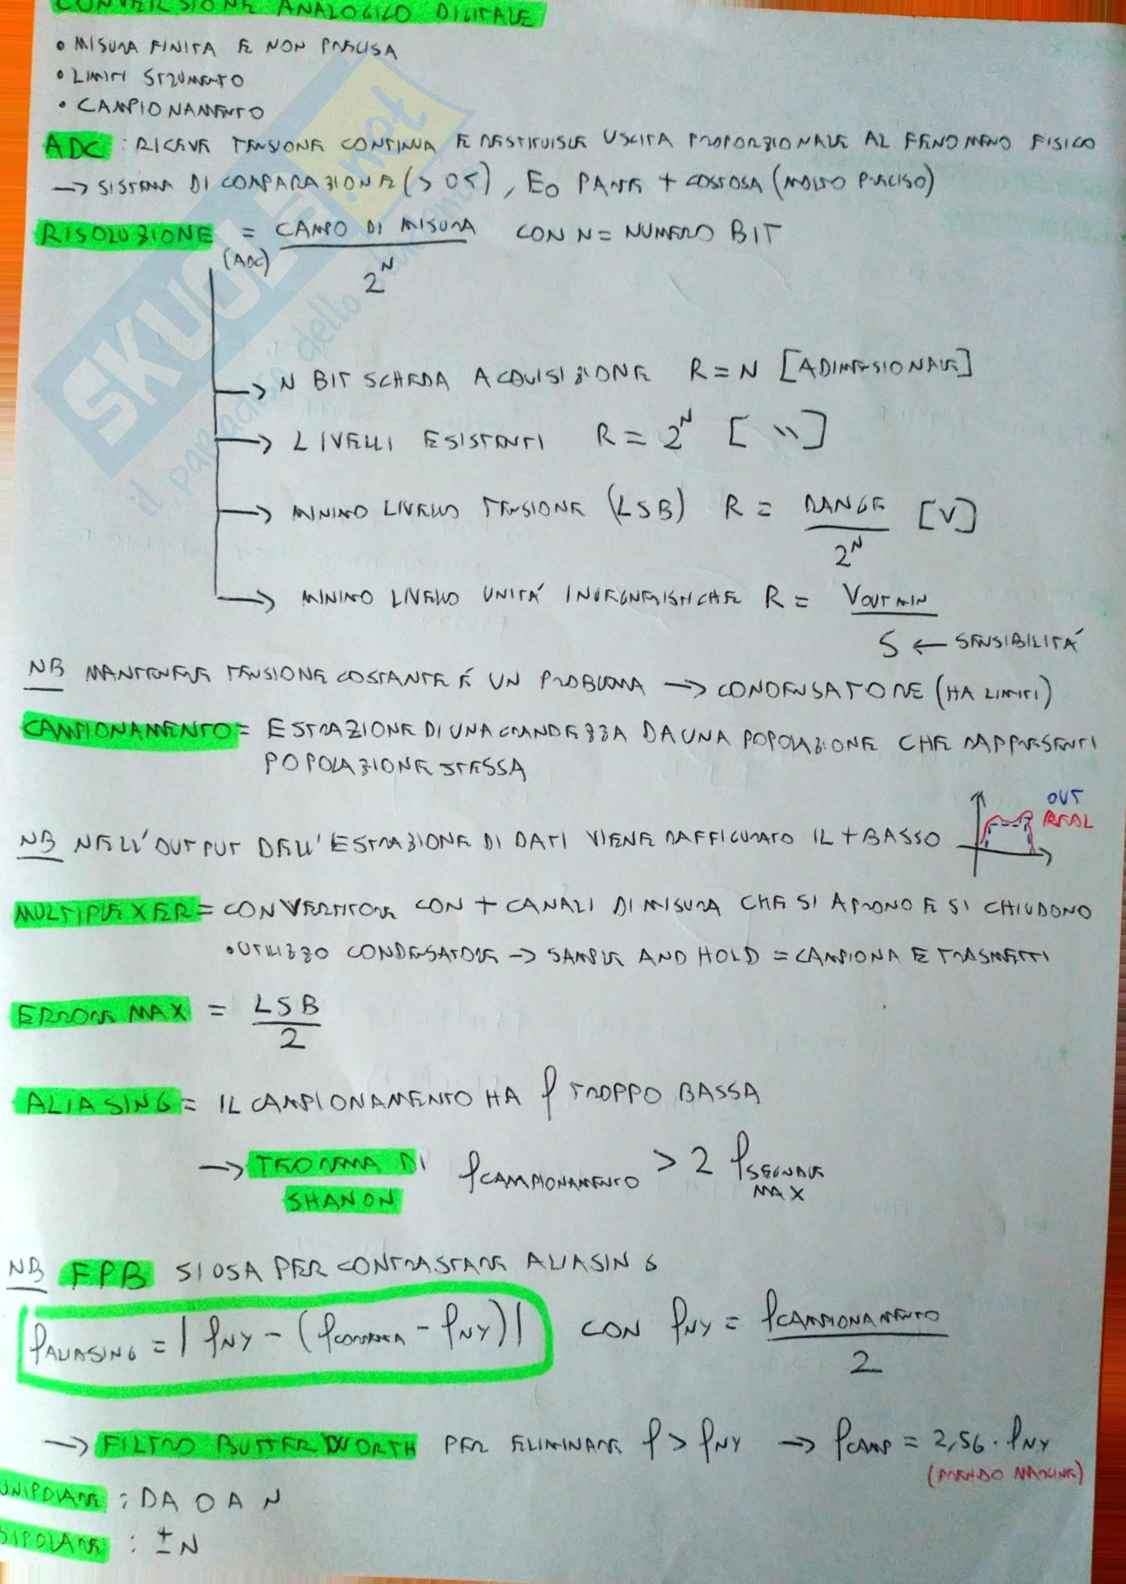 CONVERSIONE ANALOGICO DIGITALE
• MISURA FINITA E NON PRECISA
• LIMITI STRUMENTO
• CAMPIONAMENTO
ADC : RICEVE TENSIONE CONTINUA E RESTITUISCE USCITA PROPORZIONALE AL FENOMENO FISICO
→ SISTEMA DI COMPARAZIONE (> 05), E0 PARTE + COSTOSA (MOLTO PRECISO)
RISOLUZIONE = CAMPO DI MISURA / 2^N CON N = NUMERO BIT
(ADC)
→ N BIT SCHEDA ACQUISIZIONE R = N [ADIMESIONALE]
→ LIVELLI ESISTENTI R = 2^N [ " ]
→ MINIMO LIVELLO TENSIONE (LSB) R = RANGE / 2^N [V]
→ MINIMO LIVELLO UNITÁ INGEGNERISTICHE R = VOUT MIN / S ← SENSIBILITÁ
NB MANTENERE TENSIONE COSTANTE É UN PROBLEMA → CONDENSATORE (HA LIMITI)
CAMPIONAMENTO = ESTRAZIONE DI UNA GRANDEZZA DA UNA POPOLAZIONE CHE RAPPRESENTI
POPOLAZIONE STESSA
NB NELL'OUTPUT DELL'ESTRAZIONE DI DATI VIENE RAFFIGURATO IL + BASSO
OUT
REAL
MULTIPLEXER = CONVERTITORE CON + CANALI DI MISURA CHE SI APRONO E SI CHIUDONO
• UTILIZZO CONDENSATORE → SAMPLE AND HOLD = CAMPIONA E TRASMETTI
ERRORE MAX = LSB / 2
ALIASING = IL CAMPIONAMENTO HA f TROPPO BASSA
→ TEOREMA DI SHANON fCAMPIONAMENTO > 2 fSEGNALE MAX
NB FPB SI USA PER CONTRASTARE ALIASING
fALIASING = | fNY - (fCORRETTA - fNY) | CON fNY = fCAMPIONAMENTO / 2
→ FILTRO BUTTERWORTH PER ELIMINARE f > fNY → fCAMP = 2,56 · fNY
(PRENDO MARGINE)
UNIPOLARE : DA 0 A N
BIPOLARE : ± N
SKUOLA.net
il paradiso dello studente